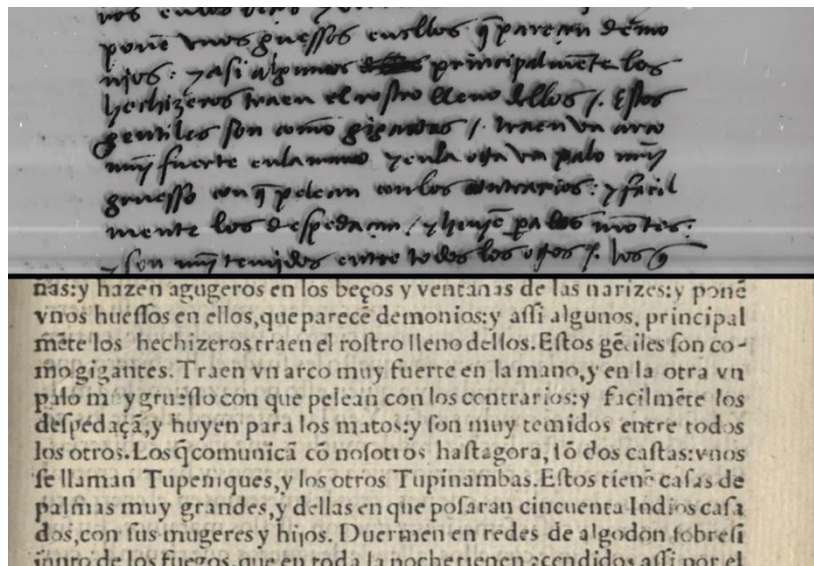 ponē vnos guessos enellos q̃ parecan demo
nios: y asi algunos principalmēte los
hechizeros traen el rostro lleno dellos /. Estos
gentiles son como gigantes /. traen vn arco
muy fuerte enla mano y enla otra vn palo muy
gruesso con q̃ pelean conlos contrarios: y facil
mente los despedaçan / y huyē pa los mōtes:
y son muy temidos entre todos los otros /. los q̃
nas:y hazen agugeros en los beços y ventanas de las narizes:y ponē
vnos huessos en ellos,que parecē demonios:y assi algunos, principal
mēte los hechizeros traen el rostro lleno dellos. Estos gētiles son co-
mo gigantes. Traen vn arco muy fuerte en la mano,y en la otra vn
palo muy gruesso con que pelean con los contrarios:y facilmēte los
despedaçā,y huyen para los matos:y son muy temidos entre todos
los otros. Los q̃ comunicā cō nosotros hastagora, sō dos castas:vnos
se llaman Tupeniques,y los otros Tupinambas. Estos tienē casas de
palmas muy grandes,y dellas en que posaran cincuenta Indios casa
dos,con sus mugeres y hijos. Duermen en redes de algodon sobresi
junto de los fuegos,que en toda la noche tienen acendidos assi por el